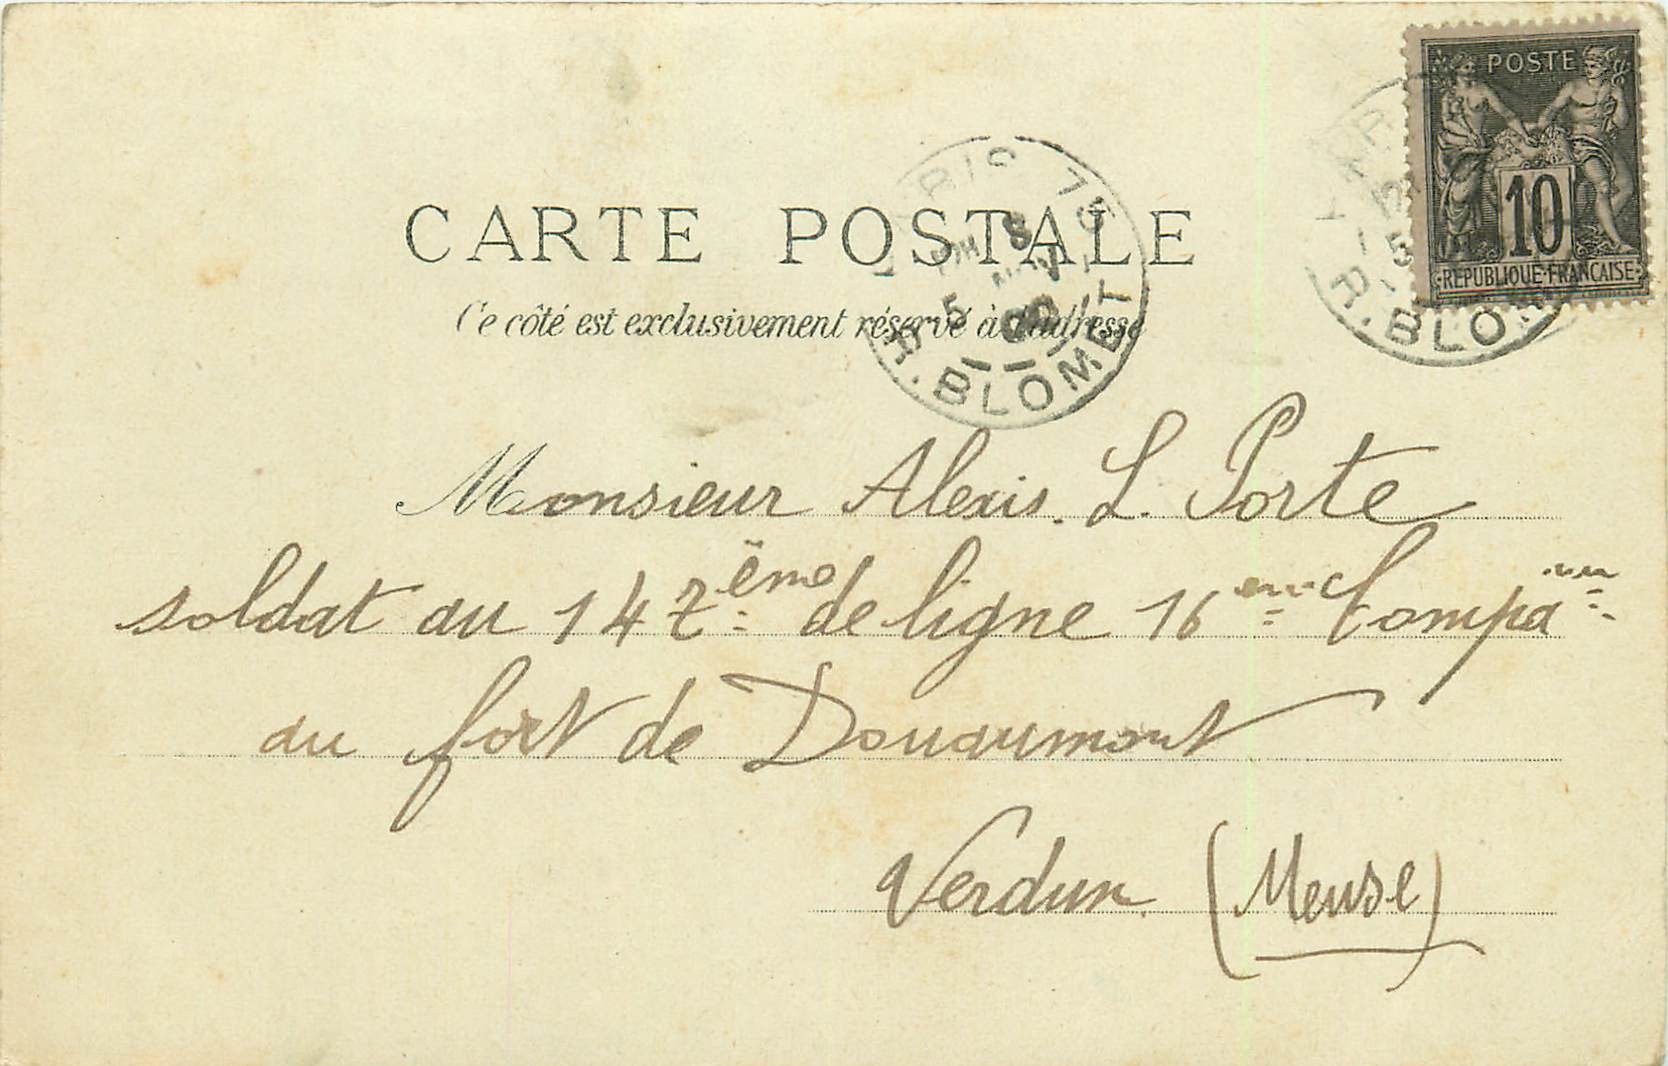 POSTE
10
REPUBLIQUE FRANCAISE
CARTE POSTALE
Ce côté est exclusivement réservé à l'adresse
PARIS 75
8
NOV
5
00
R. BLOMET
R. BLOM
Monsieur Alexis. L. Porte
soldat au 147ème de ligne 16eme Compa
au fort de Douaumont
Verdun. (Meuse)